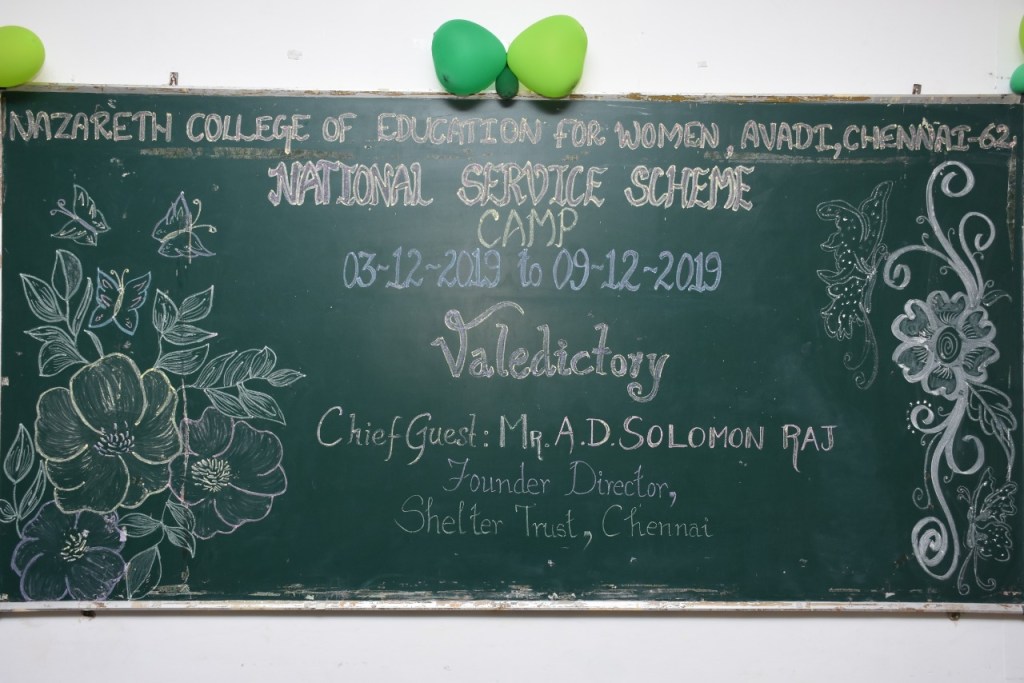 NAZARETH COLLEGE OF EDUCATION FOR WOMEN, AVADI, CHENNAI-62.
NATIONAL SERVICE SCHEME
CAMP
03-12-2019 to 09-12-2019
Valedictory
Chief Guest: MR. A.D. SOLOMON RAJ
Founder Director,
Shelter Trust, Chennai